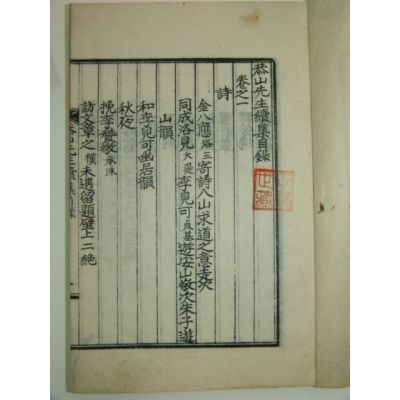 恭山先生續集目錄
卷之一
詩
金八應洛三寄詩八山求道之意走次
同成洛見大湜李見可貞基遊安山敬次朱子遊
山韻
和李見可幽居韻
秋夜
挽李發敬
訪文章之樸未遇留題壁上二絶